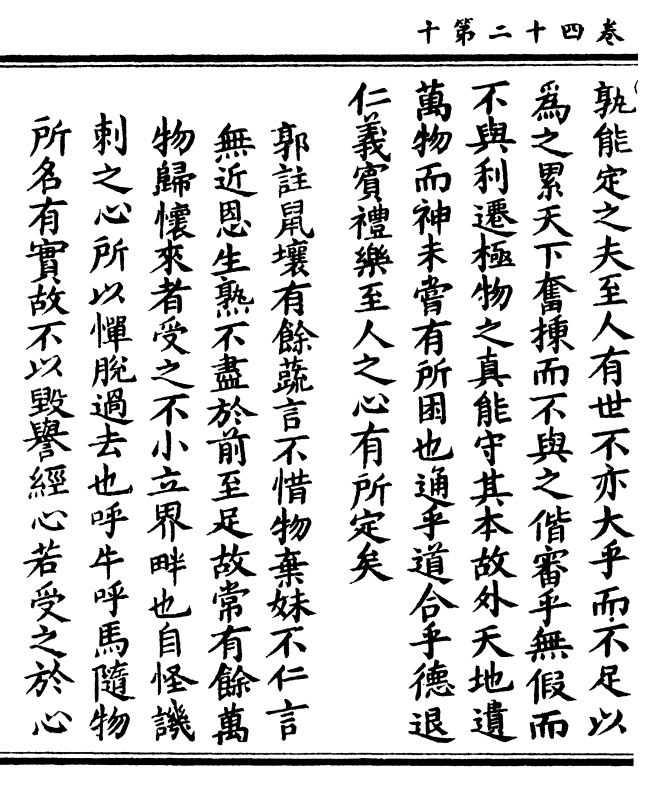 卷四十二第十
孰能定之夫至人有世不亦大乎而不足以
為之累天下奮揀而不與之偕審乎無假而
不與利遷極物之真能守其本故外天地遺
萬物而神未嘗有所困也通乎道合乎德退
仁義賓禮樂至人之心有所定矣
郭註鼠壤有餘蔬言不惜物棄妹不仁言
無近恩生熟不盡於前至足故常有餘萬
物歸懷來者受之不小立界畔也自怪譏
刺之心所以憚脫過去也呼牛呼馬隨物
所名有實故不以毀譽經心若受之於心